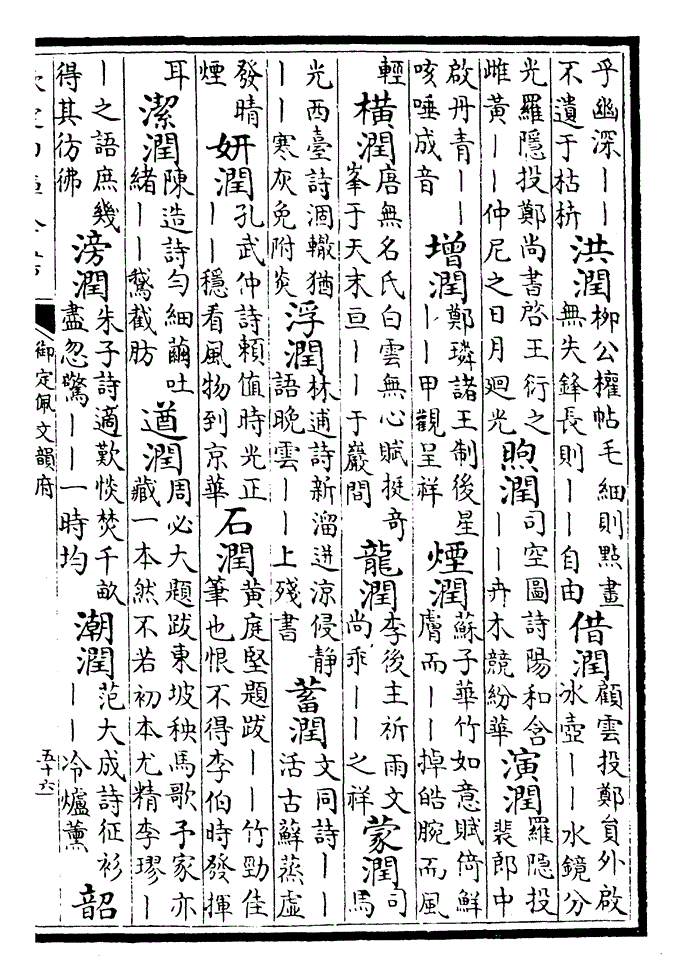 乎幽深丨丨
不遺于枯枿
洪潤
柳公權帖毛細則點畫
無失鋒長則丨丨自由
借潤
顧雲投鄭員外啟
氷壺丨丨水鏡分
光羅隱投鄭尚書啓王衍之
雌黃丨丨仲尼之日月廻光
煦潤
司空圖詩陽和含
丨丨卉木競紛華
演潤
羅隱投
裴郎中
啟丹青丨丨
咳唾成音
增潤
鄭璘諸王制後星
丨丨甲觀呈祥
煙潤
蘇子華竹如意賦倚鮮
膚而丨丨掉皓腕而風
輕
橫潤
唐無名氏白雲無心賦挺奇
峯于天末亘丨丨于巖間
龍潤
李後主祈雨文
尚乖丨丨之祥
蒙潤
司
馬
光西臺詩涸轍猶
丨丨寒灰免附炎
浮潤
林逋詩新溜迸涼侵静
語晚雲丨丨上殘書
蓄潤
文同詩丨丨
活古蘚蒸虛
發晴
煙
妍潤
孔武仲詩頼值時光正
丨丨穩看風物到京華
石潤
黃庭堅題跋丨丨竹勁佳
筆也恨不得李伯時發揮
耳
潔潤
陳造詩勻細繭吐
緒丨丨鵞截肪
遒潤
周必大題跋東坡秧馬歌予家亦
藏一本然不若初本尤精李璆丨
丨之語庶幾
得其彷彿
滂潤
朱子詩適歎惔焚千畝
盡忽驚丨丨一時均
潮潤
范大成詩征衫
丨丨冷爐薰
韶
御定佩文韻府
五十六